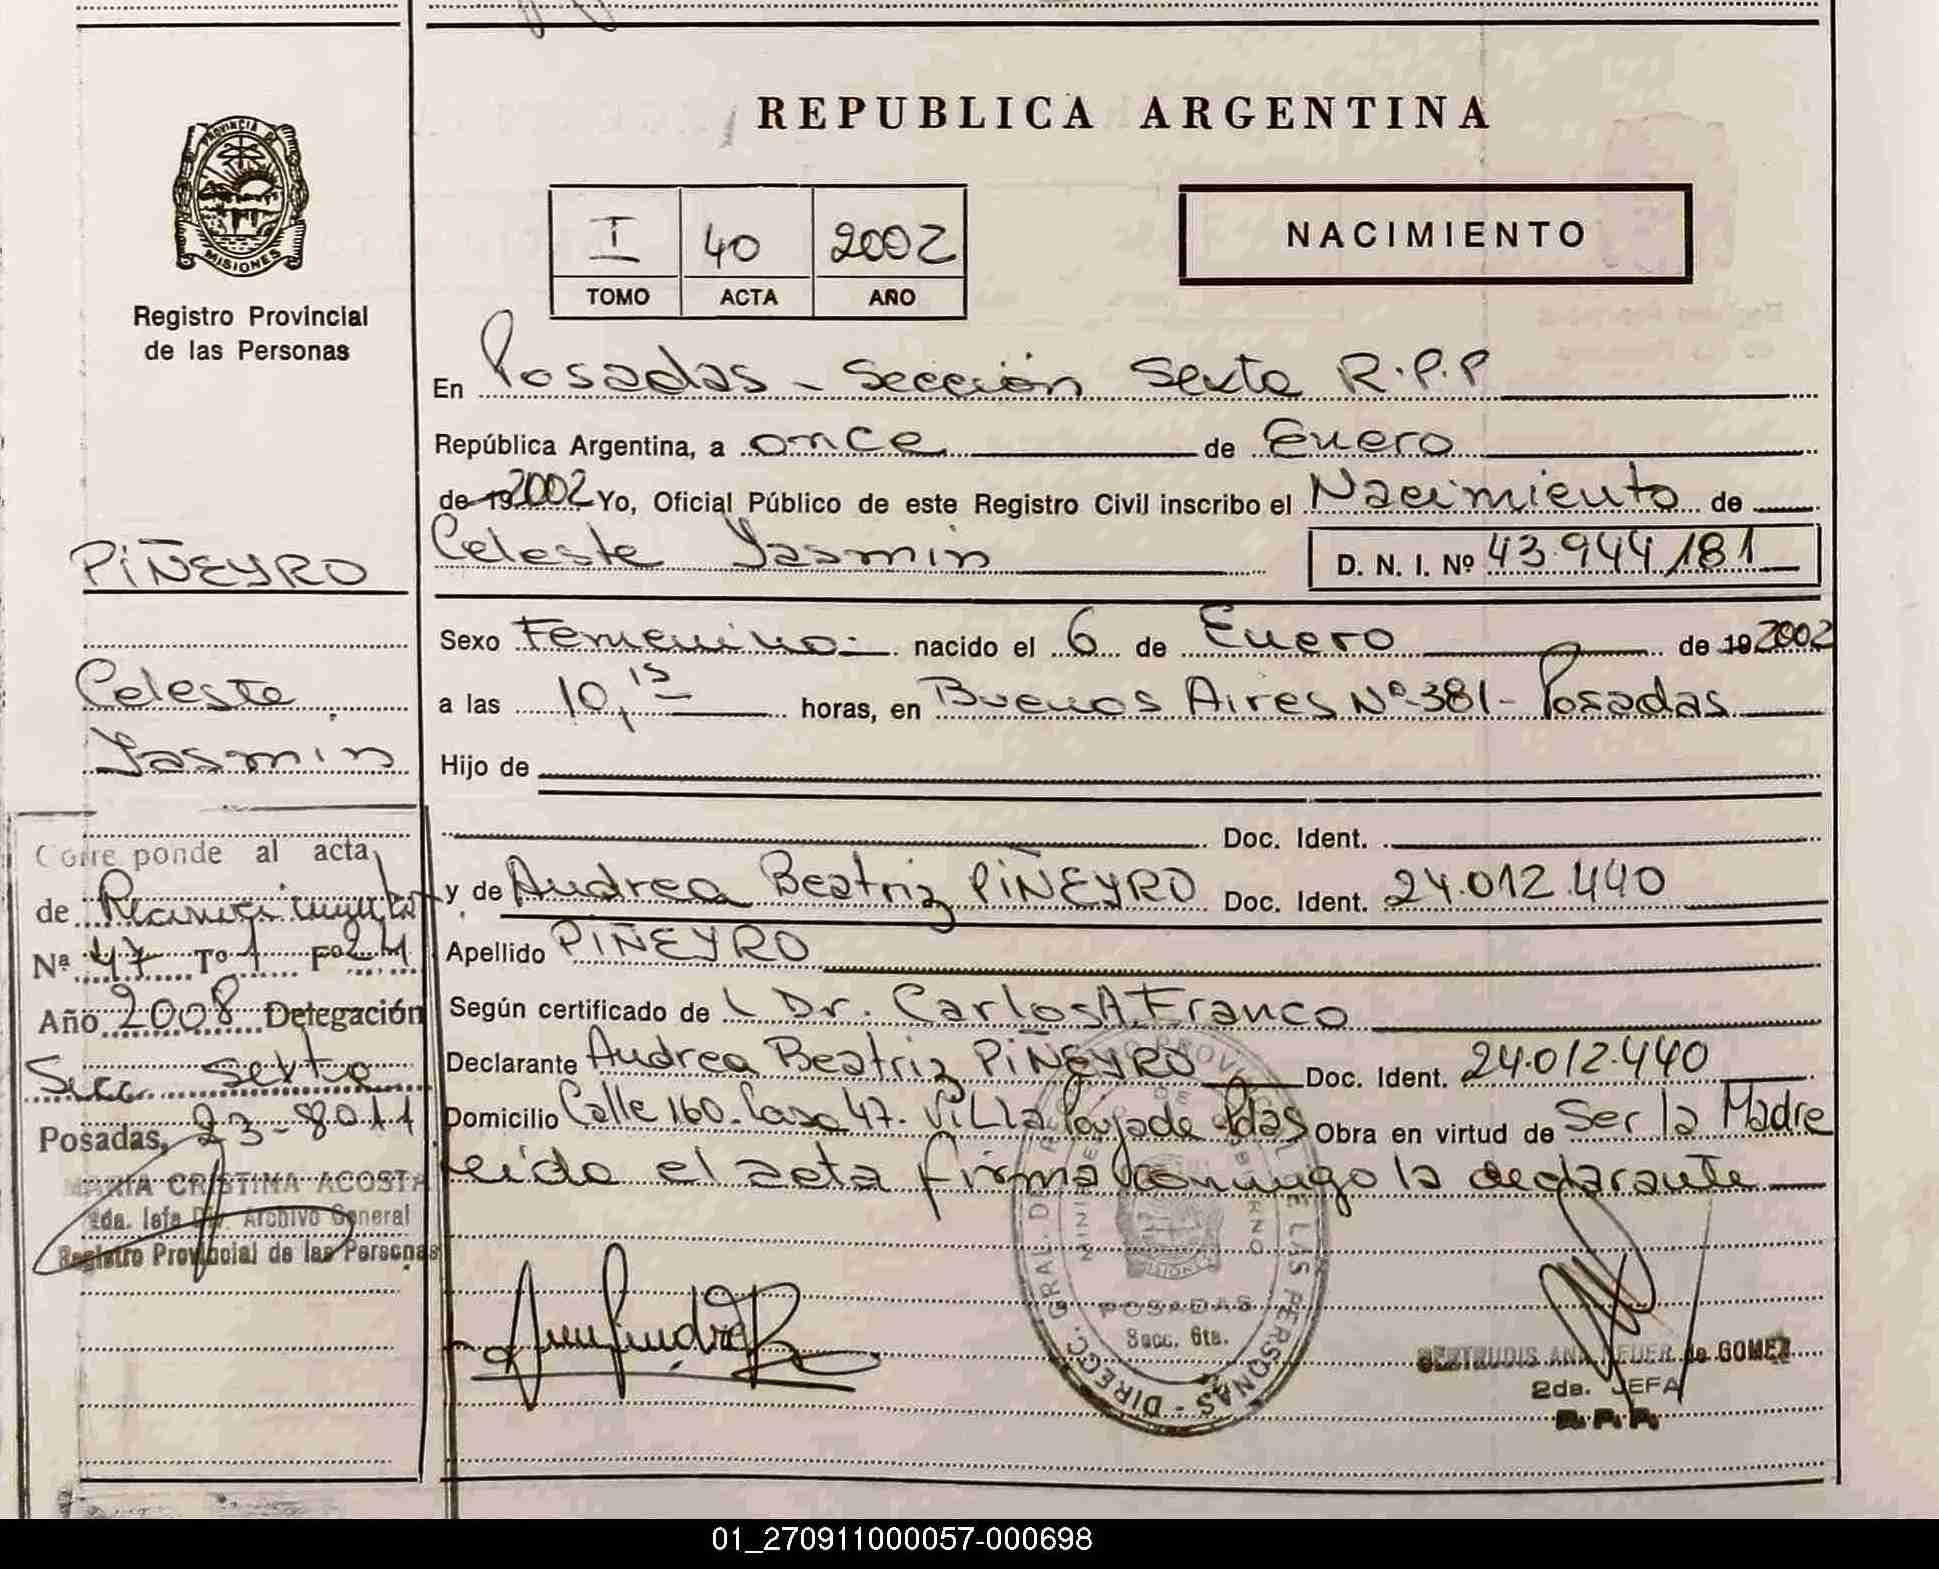 REPUBLICA ARGENTINA
PROVINCIA DE
MISIONES
Registro Provincial
de las Personas
I 40 2002
TOMO ACTA AÑO
NACIMIENTO
En Posadas - Sección Sexta R.P.P
República Argentina, a once de Enero
de 19 2002 Yo, Oficial Público de este Registro Civil inscribo el Nacimiento de
Celeste Yasmin D. N. I. Nº 43.944/181
PIÑEYRO
Celeste
Yasmin
Sexo Femenino nacido el 6 de Enero de 19 2002
a las 10,15 horas, en Buenos Aires Nº 381 - Posadas
Hijo de
Doc. Ident.
y de Andrea Beatriz PIÑEYRO Doc. Ident. 24.012.440
Apellido PIÑEYRO
Según certificado de Dr. Carlos A. Franco
Declarante Andrea Beatriz PIÑEYRO Doc. Ident. 24.012.440
Domicilio Calle 160. Casa 47. Villa Pdas Obra en virtud de Ser la Madre
leído el acta firma conmigo la declarante
Corre ponde al acta
de Reconocimiento
Nª 47 Tº 1 Fº
Año 2008 Delegación
Secc. Sexta
Posadas, 23-8-011
MARIA CRISTINA ACOSTA
2da. Jefa Div. Archivo General
Registro Provincial de las Personas
DIRECC. GRAL. DE LAS PERSONAS
POSADAS
Secc. 6ta.
GERTRUDIS de GOMEZ
2da. JEFA
R.P.P.
01_270911000057-000698